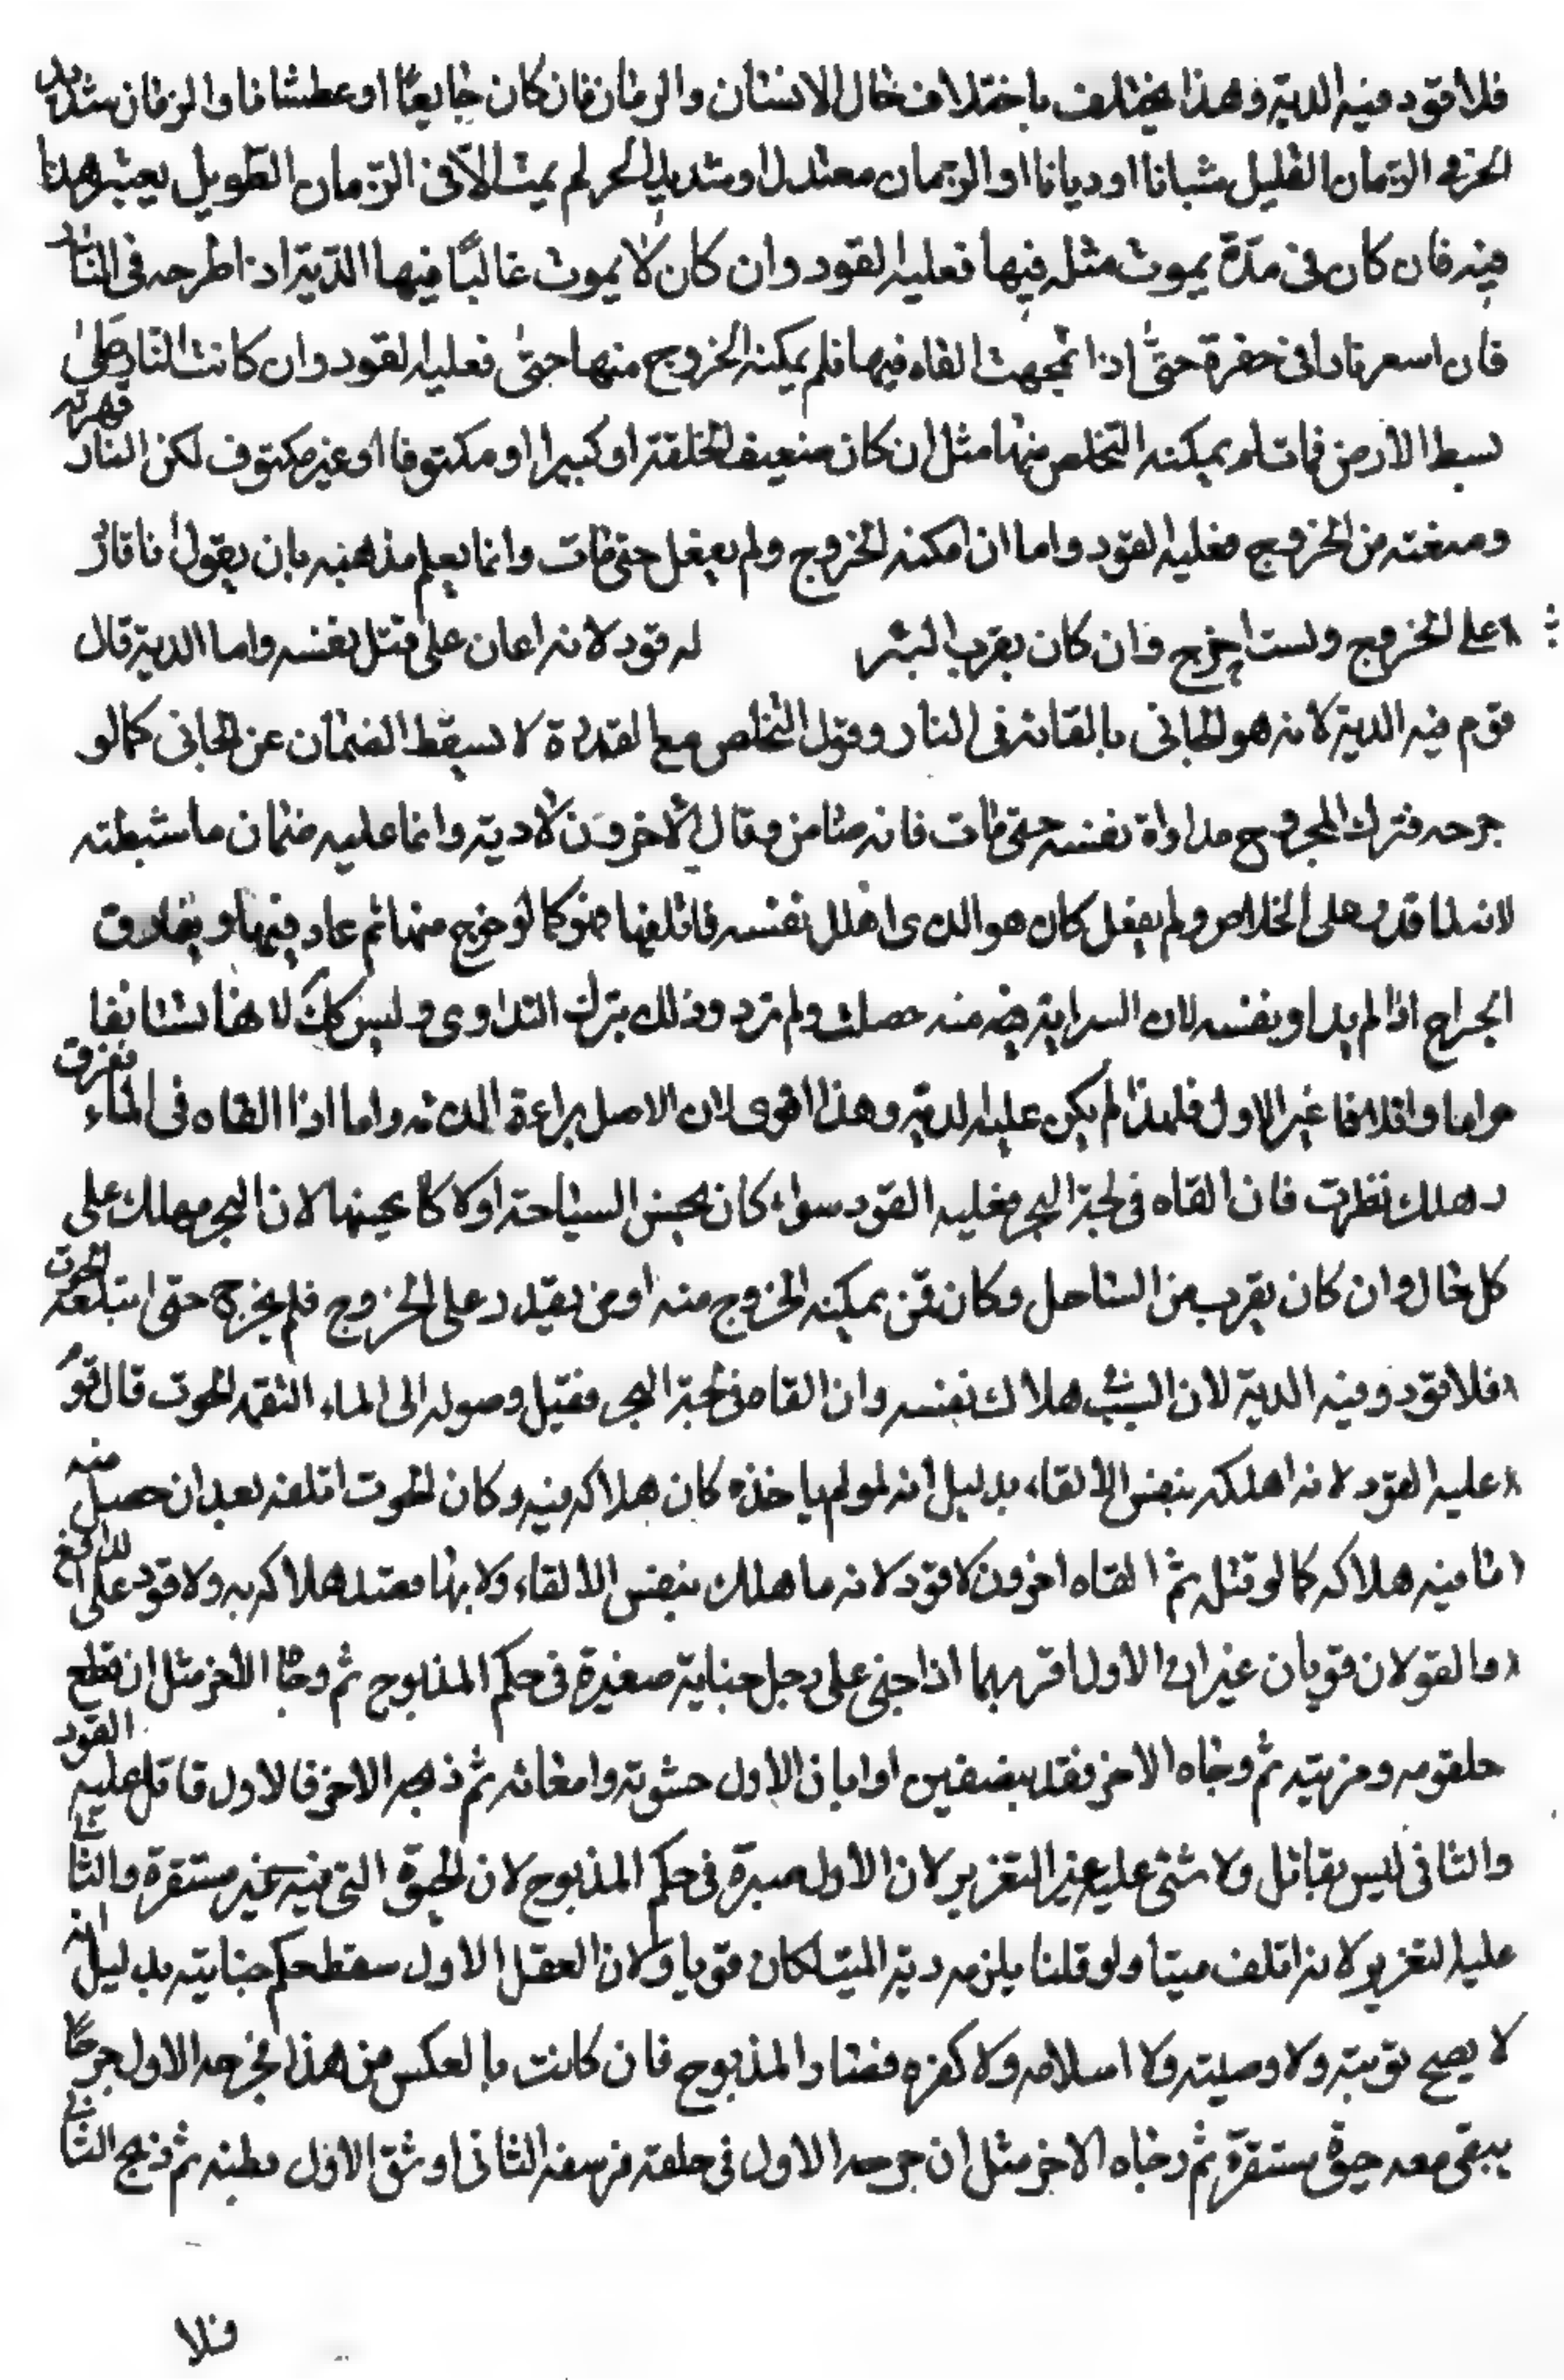 فلا قود فيه الدية وهذا يختلف باختلاف حال الانسان والزمان فان كان جايعا او عطشانا والزمان شديد
الحر في الزمان القليل شبانا او ديانا او الزمان معتدل او شديد الحر لم يمت الا في الزمان الطويل يعتبر هذا
فيه فان كان في مدة يموت مثله فيها فعليه القود وان كان لا يموت غالبا فيها الدية اذا طرحه في النار
فان اسعر نارا في حفرة حتى اذا تجهت القاه فيها فلم يمكنه الخروج منها حتى فعليه القود وان كانت النار على
بسط الارض فمات لم يمكنه التخلص منها مثل ان كان ضعيف الخلقة او كبيرا او مكتوفا او غير مكتوف لكن النار قهرته
ومنعته من الخروج فعليه القود واما ان امكنه الخروج ولم يفعل حتى مات وانما يعلم هذا منه بان يقول انا قادر
على الخروج ولست اخرج وان كان بقرب البئر له قود لانه اعان على قتل نفسه واما الدية قال
قوم فيه الدية لانه هو الجاني بالقائه في النار وقول التخلص مع القدرة لا يسقط الضمان عن الجاني كما لو
جرحه فترك المجروح مداواة نفسه حتى مات فانه ضامن وقال الاخرون لا دية وانما عليه ضمان ما شيطته
لانه لما قدر على الخلاص ولم يفعل كان هو الذي اهلك نفسه فاتلفها فهو كما لو خرج منها ثم عاد فيها ويفارق
الجراح اذا لم يداو نفسه لان السراية فيه منه حصلت ولم تزد وذلك بترك التداوي وليس كك لا هنا يستانفا
حراما واتلافا غير الاول فلهذا لم يكن عليه الدية وهذا اقوى لان الاصل براءة الذمه واما اذا القاه في الماء فغرق
د هلك نظرت فان القاه في لجة البحر فعليه القود سواء كان يحسن السياحة او لا كا يحينها لان البحر مهلك على
كل حال وان كان بقرب من الساحل وكان قمن يمكنه الخروج منه او من يقدر على الخروج فلم يخرج حتى ابتلعه الحوت
فلا قود وفيه الدية لان السبب هلاك نفسه وان القاه في لجة البحر فقبل وصوله الى الماء التقمه الحوت قال قوم
عليه القود لانه اهلكه بنفس الالقاء بدليل انه لو لم ياخذه كان هلاكه فيه وكان الحوت اتلفه بعد ان حصل منه
ما فيه هلاكه كما لو قتله ثم القاه اخرون لا قود لانه ما هلك بنفس الالقاء ولا بها فعتد هلاكه به ولا قود على الدافع
والقولان قويان غير ان الاول اقربهما اذا جنى على رجل جناية صغيرة في حكم المذبوح ثم وجا الاخر مثل ان قطع
حلقومه ومريته ثم وجاه الاخر فقد بنصفين او ابان الاول حشوته وامعائه ثم ذبحه الاخر فالاول قاتل عليه القود
والثاني ليس بقاتل ولا شئ عليه غير التعزير لان الاول صيره في حكم المذبوح لان الحيوة التي فيه غير مستقرة والثاني
عليه التعزير لانه اتلف ميتا ولو قلنا يلزمه دية الميت لكان قويا ولان العقل الاول سقط حكم جنايته بدليل انه
لا يصح توبته ولا وصيته ولا اسلامه ولا كفره فصار المذبوح فان كانت بالعكس من هذا فجرحه الاول جرحا
يبقى معه حيوة مستقرة ثم وجاه الاخر مثل ان جرحه الاول في حلقه فرسغه الثاني او شق الاول بطنه ثم ذبح الثاني
فلا